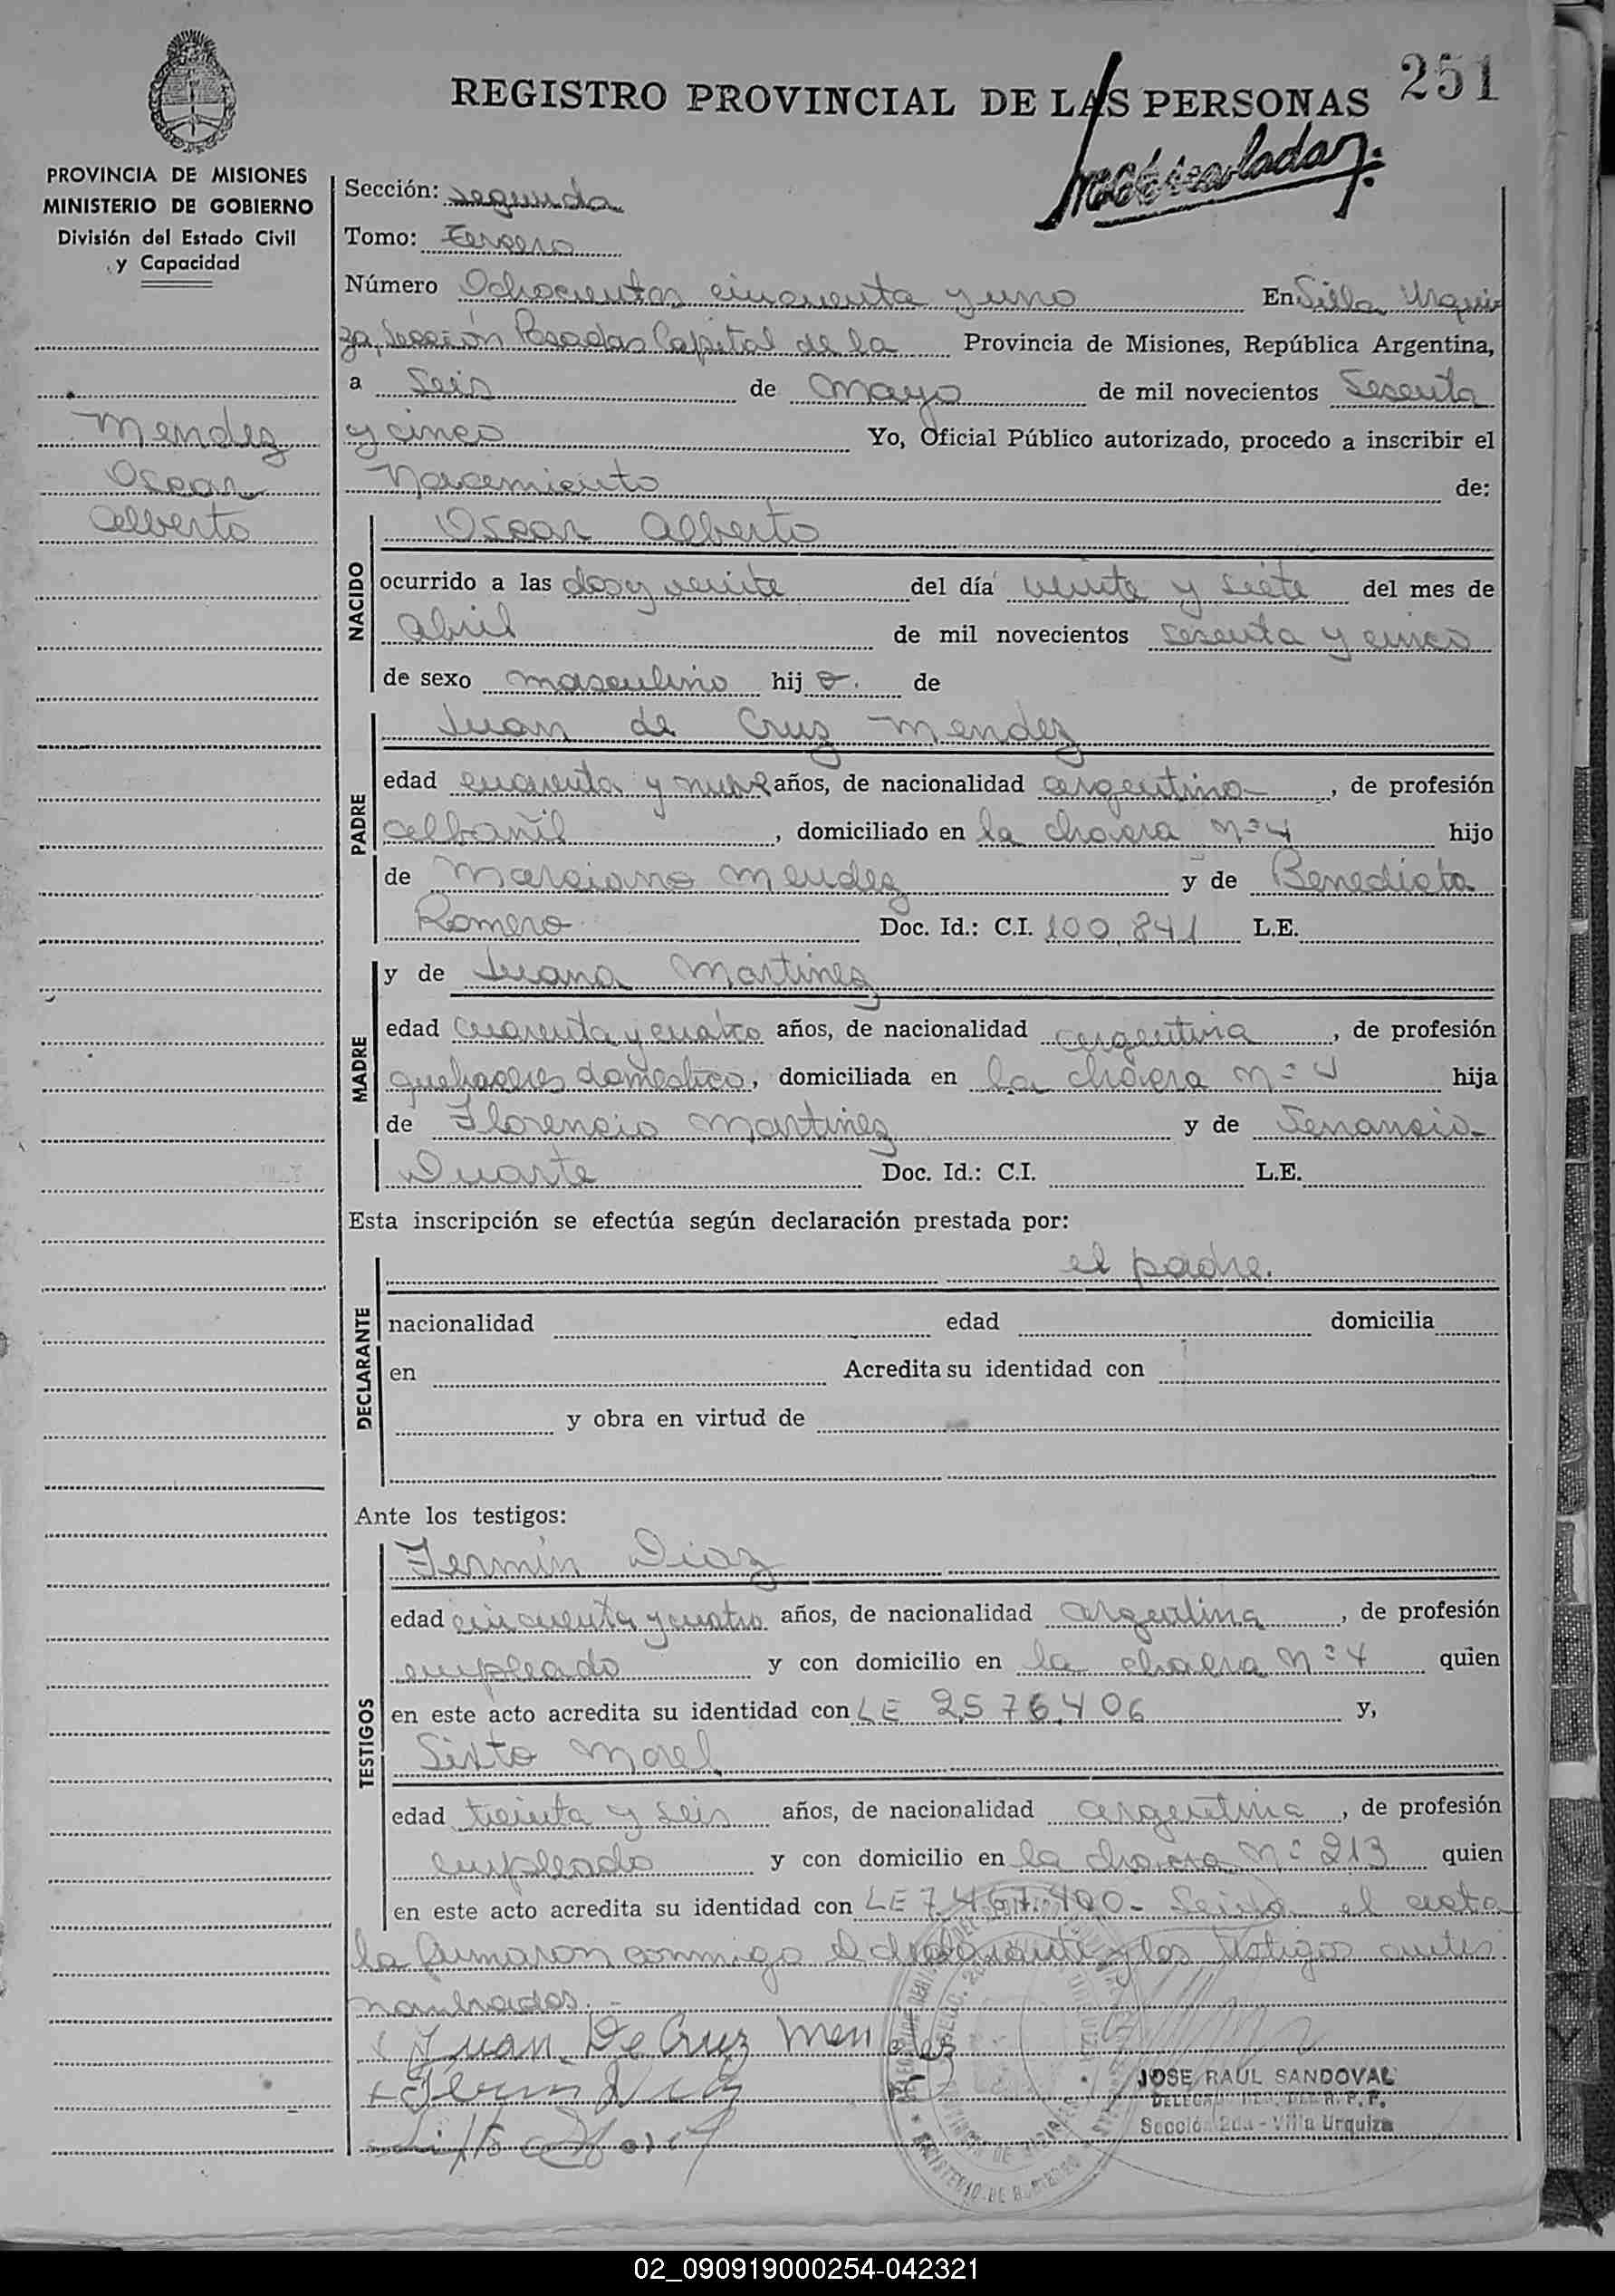 251
REGISTRO PROVINCIAL DE LAS PERSONAS
PROVINCIA DE MISIONES
MINISTERIO DE GOBIERNO
División del Estado Civil
y Capacidad
Mendez
Oscar
Alberto
Sección: Segunda
Tomo: Tercero
Número Ochocientos cincuenta y uno En Villa Urqui
za, Sección Posadas Capital de la Provincia de Misiones, República Argentina,
a Seis de Mayo de mil novecientos Sesenta
y cinco Yo, Oficial Público autorizado, procedo a inscribir el
Nacimiento de:
NACIDO
Oscar Alberto
ocurrido a las dos y veinte del día veinte y siete del mes de
Abril de mil novecientos sesenta y cinco
de sexo masculino hijo. de
PADRE
Juan de Cruz Mendez
edad cuarenta y nueve años, de nacionalidad argentina, de profesión
albañil, domiciliado en la chacra Nº 4 hijo
de Marciano Mendez y de Benedicta
Romero Doc. Id.: C.I. 100.841 L.E.
MADRE
y de Juana Martinez
edad cuarenta y cuatro años, de nacionalidad argentina, de profesión
quehaceres domestico, domiciliada en la chacra Nº 4 hija
de Florencio Martinez y de Venancia
Duarte Doc. Id.: C.I. L.E.
Esta inscripción se efectúa según declaración prestada por:
DECLARANTE
el padre.
nacionalidad edad domicilia
en Acredita su identidad con
y obra en virtud de
Ante los testigos:
TESTIGOS
Fermín Diaz
edad cincuenta y cuatro años, de nacionalidad argentina, de profesión
empleado y con domicilio en la chacra Nº 4 quien
en este acto acredita su identidad con LE 2.576.406 y,
Sixto Morel
edad treinta y seis años, de nacionalidad argentina, de profesión
empleado y con domicilio en la chacra Nº 213 quien
en este acto acredita su identidad con LE 7.467.400- el acta
la firmaron conmigo el declarante y los testigos antes
nombrados.-
Juan De Cruz Mendez
Fermin Diaz
Sixto Morel
JOSE RAUL SANDOVAL
Sección 2da - Villa Urquiza
02_090919000254-042321